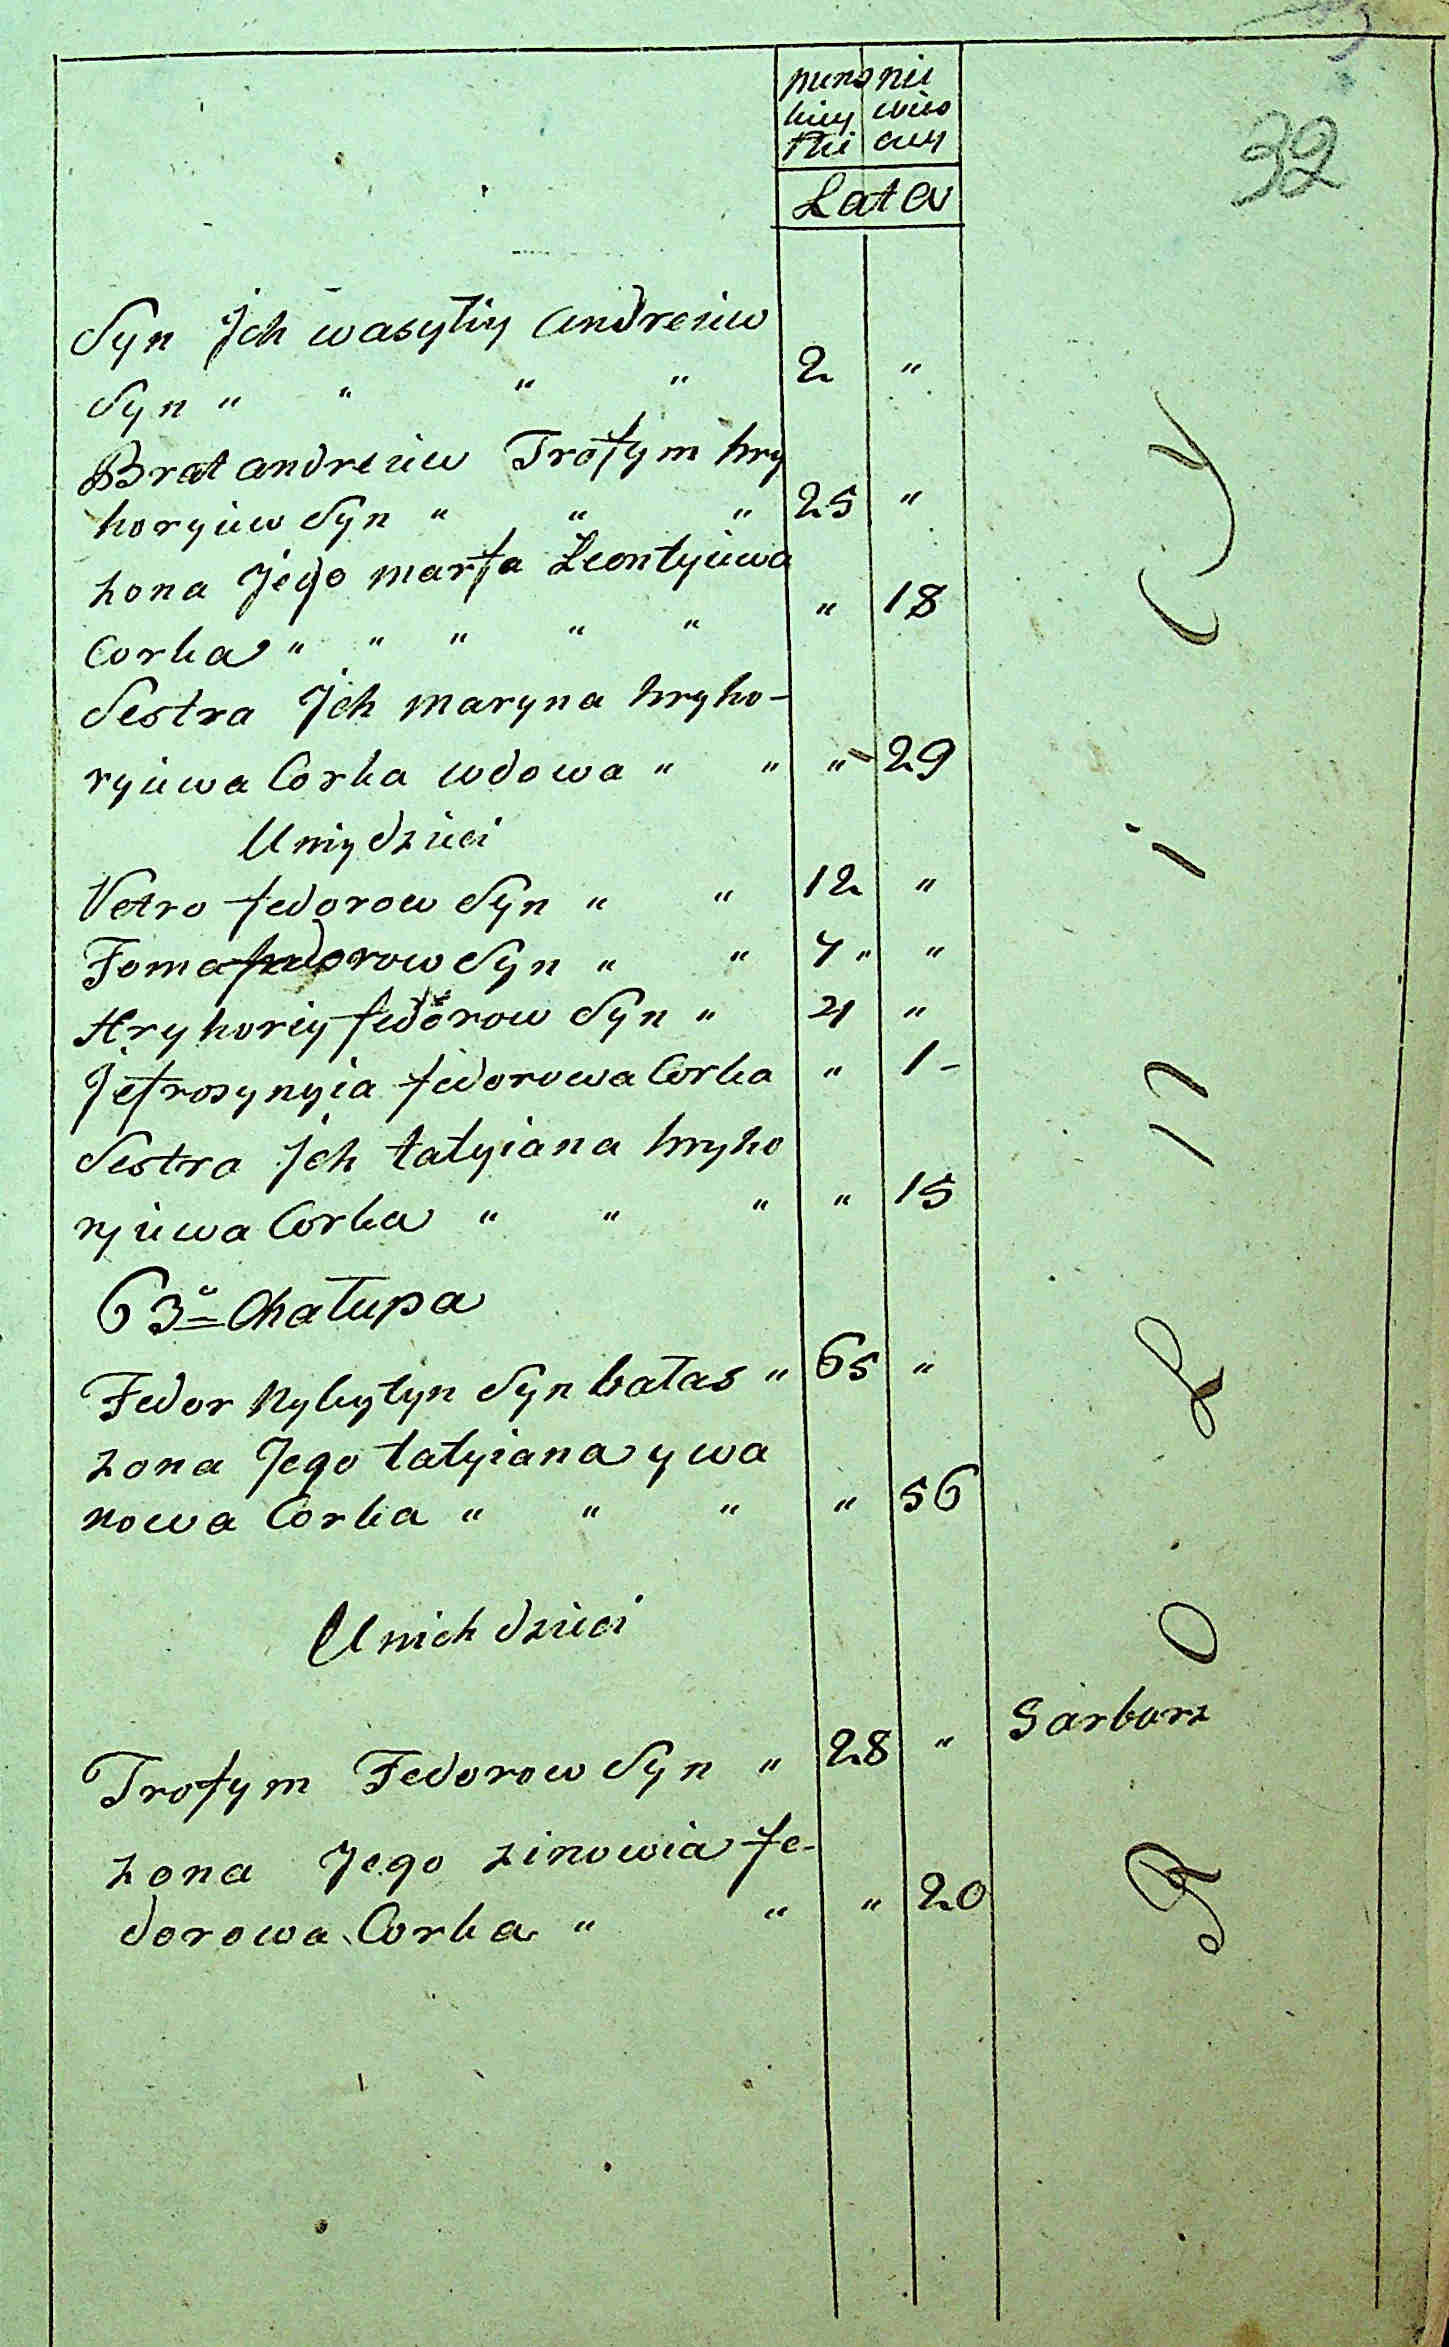 32
Lata
Syn Jch wasyliy Andreiiw
Syn " " " " 2 "
Brat andreiiw Trofym hry
horyiiw Syn " " " 25 "
żona Jego marfa Leontyiiwa
Corka " " " " " " 18
Sestra Jch maryna hryho-
ryiiwa Corka wdowa " " " 29
U niy dzieci
Petro fedorow Syn " " 12 "
Foma fedorow Syn " " 7 " "
Hryhoriy fedorow Syn " 4 "
Jefrosynyia fedorowa Corka " 1 -
Sestra Jch tatyiana hryho
ryiiwa Corka " " " " 15
63a Chałupa
Fedor Nykytyn Syn bałas " 65 "
żona Jego tatyiana ywa
nowa Corka " " " " 56
U nich dzieci
Trofym Fedorow Syn " 28 " Garbarz
żona Jego zinowia fe-
dorowa Corka " " " 20
Rolnicy